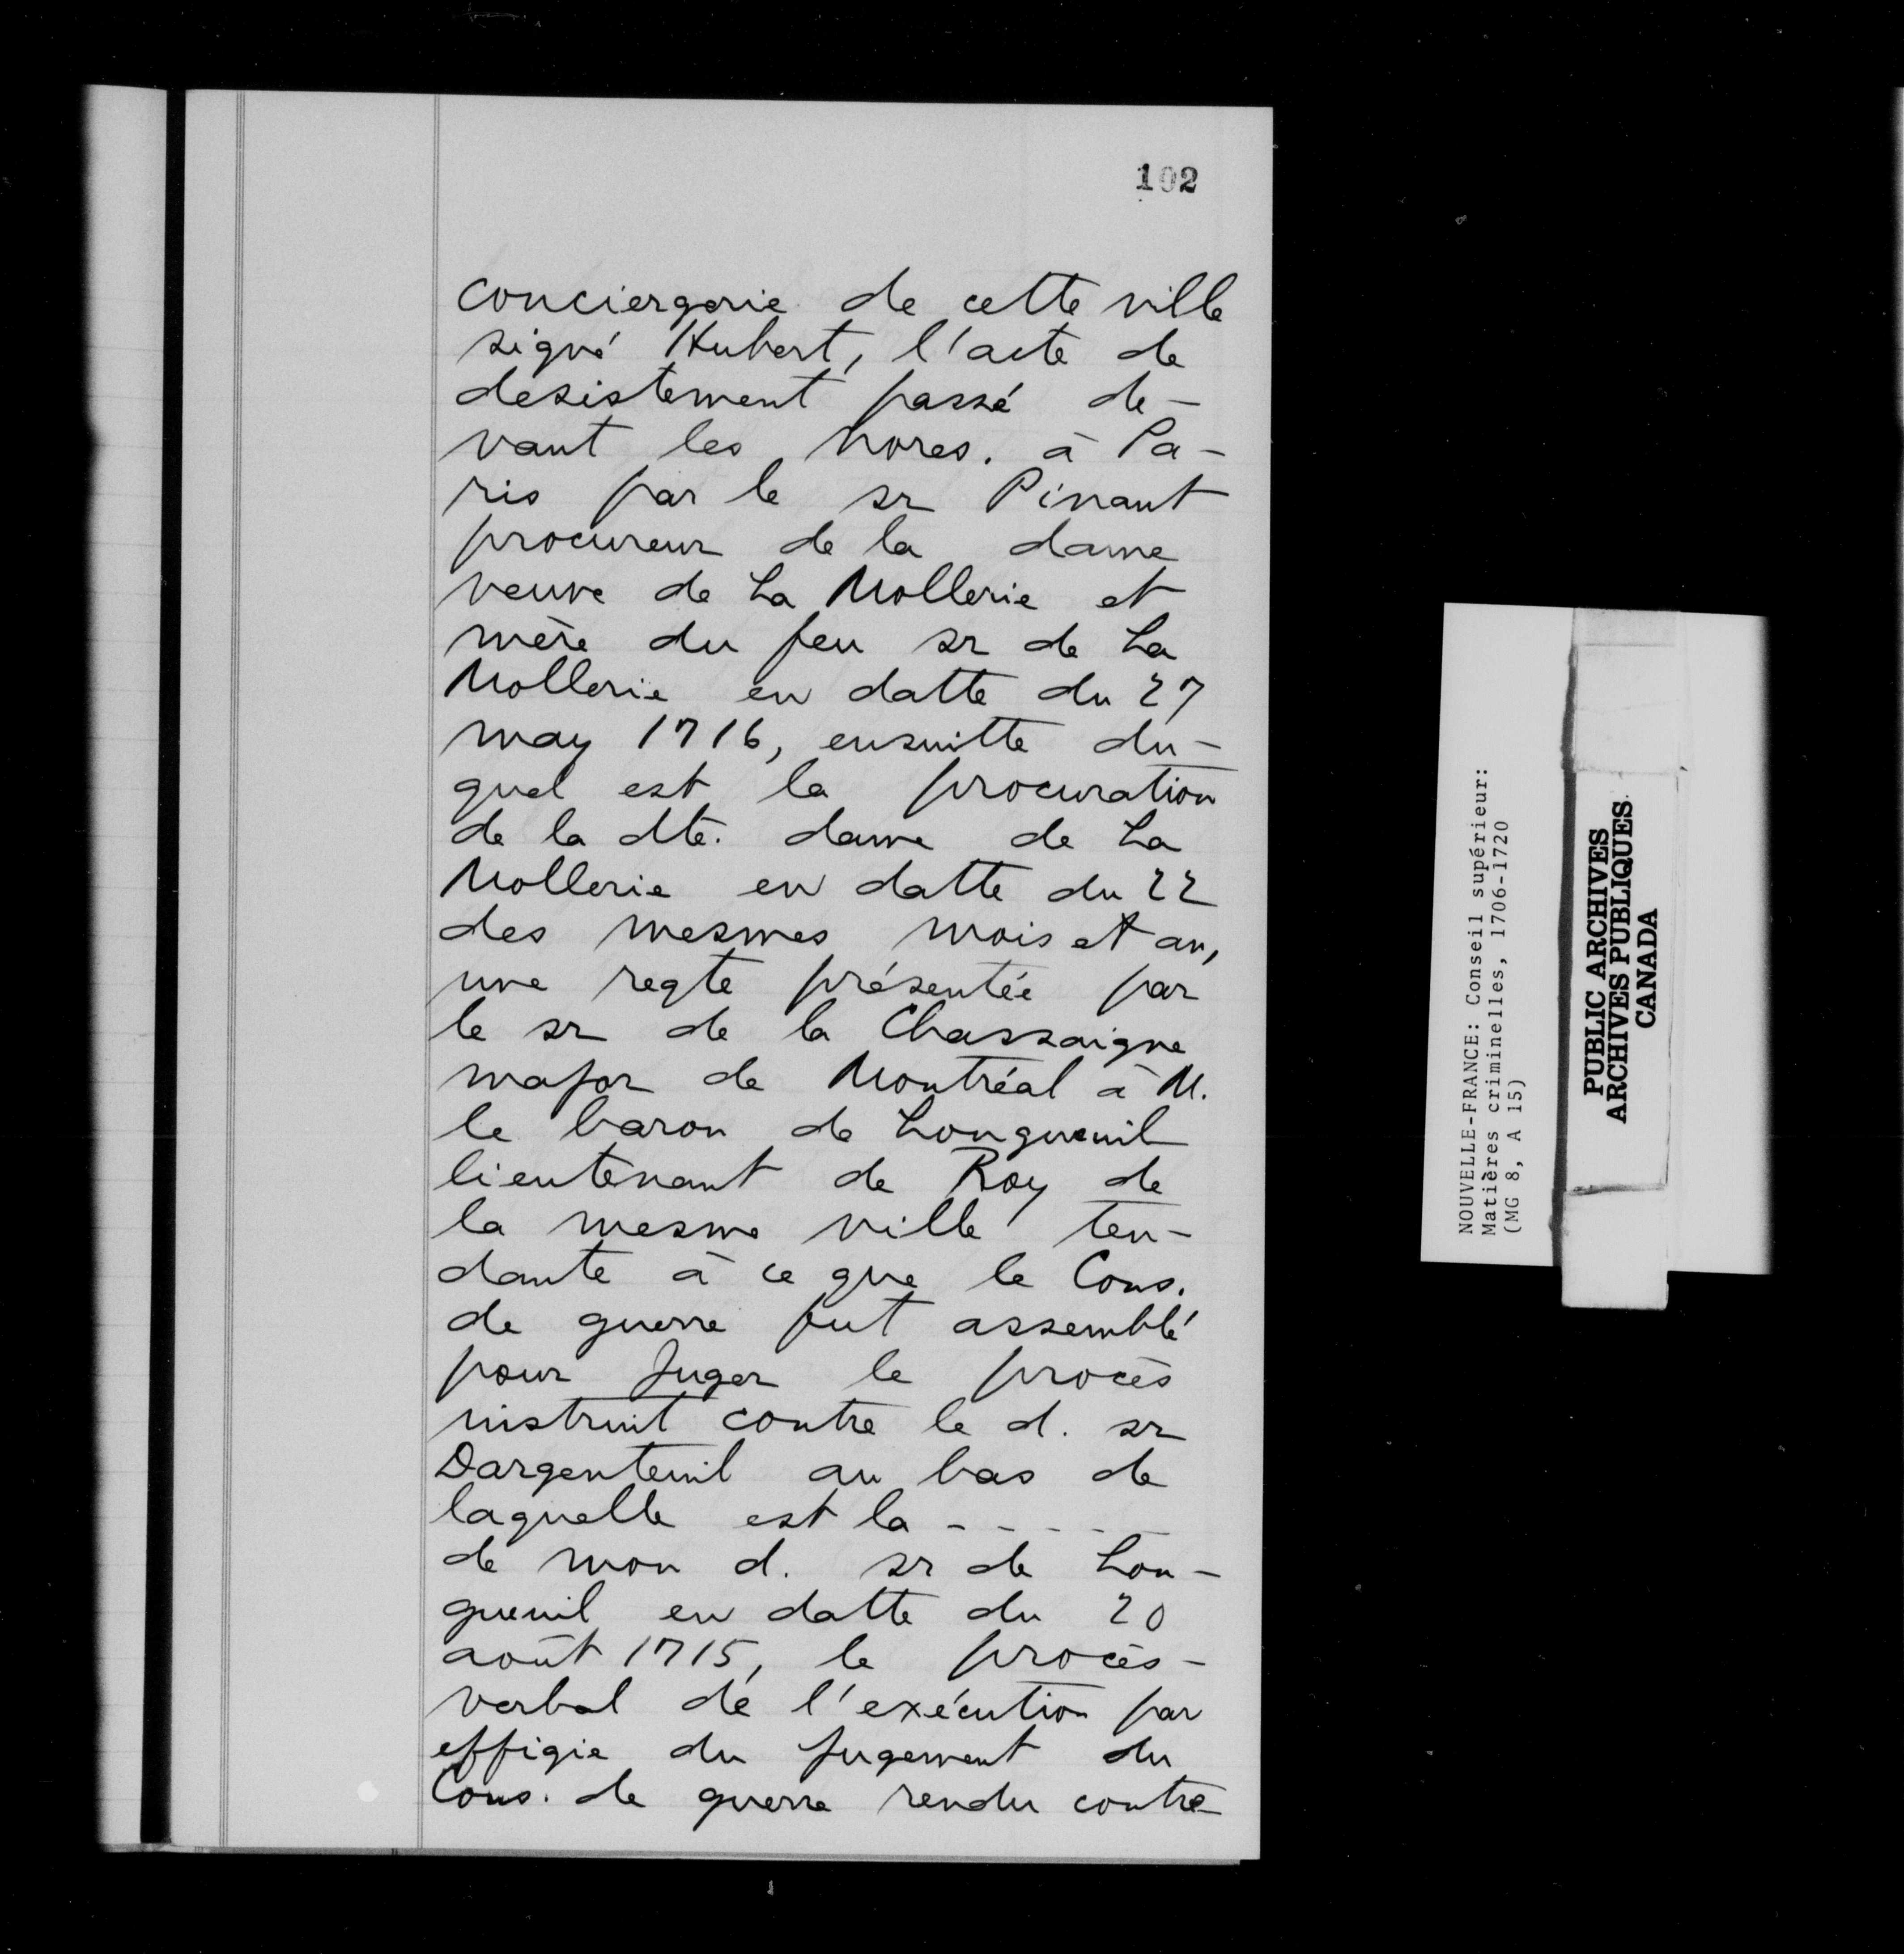 102
conciergerie de cette ville
signé Hubert, l'acte de
desistement passé de-
vant les nores. à Pa-
ris par le sr Pinaut
procureur de la dame
veuve de La Mollerie et
mère du feu sr de La
Mollerie en datte du 27
may 1716, ensuitte du-
quel est la procuration
de la dte. dame de La
Mollerie en datte du 22
des mesmes mois et an,
une reqte présentée par
le sr de la Chassaigne
major de Montréal à M.
le baron de Longueuil
lieutenant de Roy de
la mesme ville ten-
dante à ce que le Cons.
de guerre fut assemblé
pour juger le procès
instruit contre le d. sr
Dargenteuil au bas de
laquelle est la - - - - -
de mon d. sr de Lon-
gueuil en datte du 20
août 1715, le procès-
verbal de l'exécution par
effigie du jugement du
Cons. de guerre rendu contre
NOUVELLE-FRANCE: Conseil supérieur:
Matières criminelles, 1706-1720
(MG 8, A 15)
PUBLIC ARCHIVES
ARCHIVES PUBLIQUES
CANADA